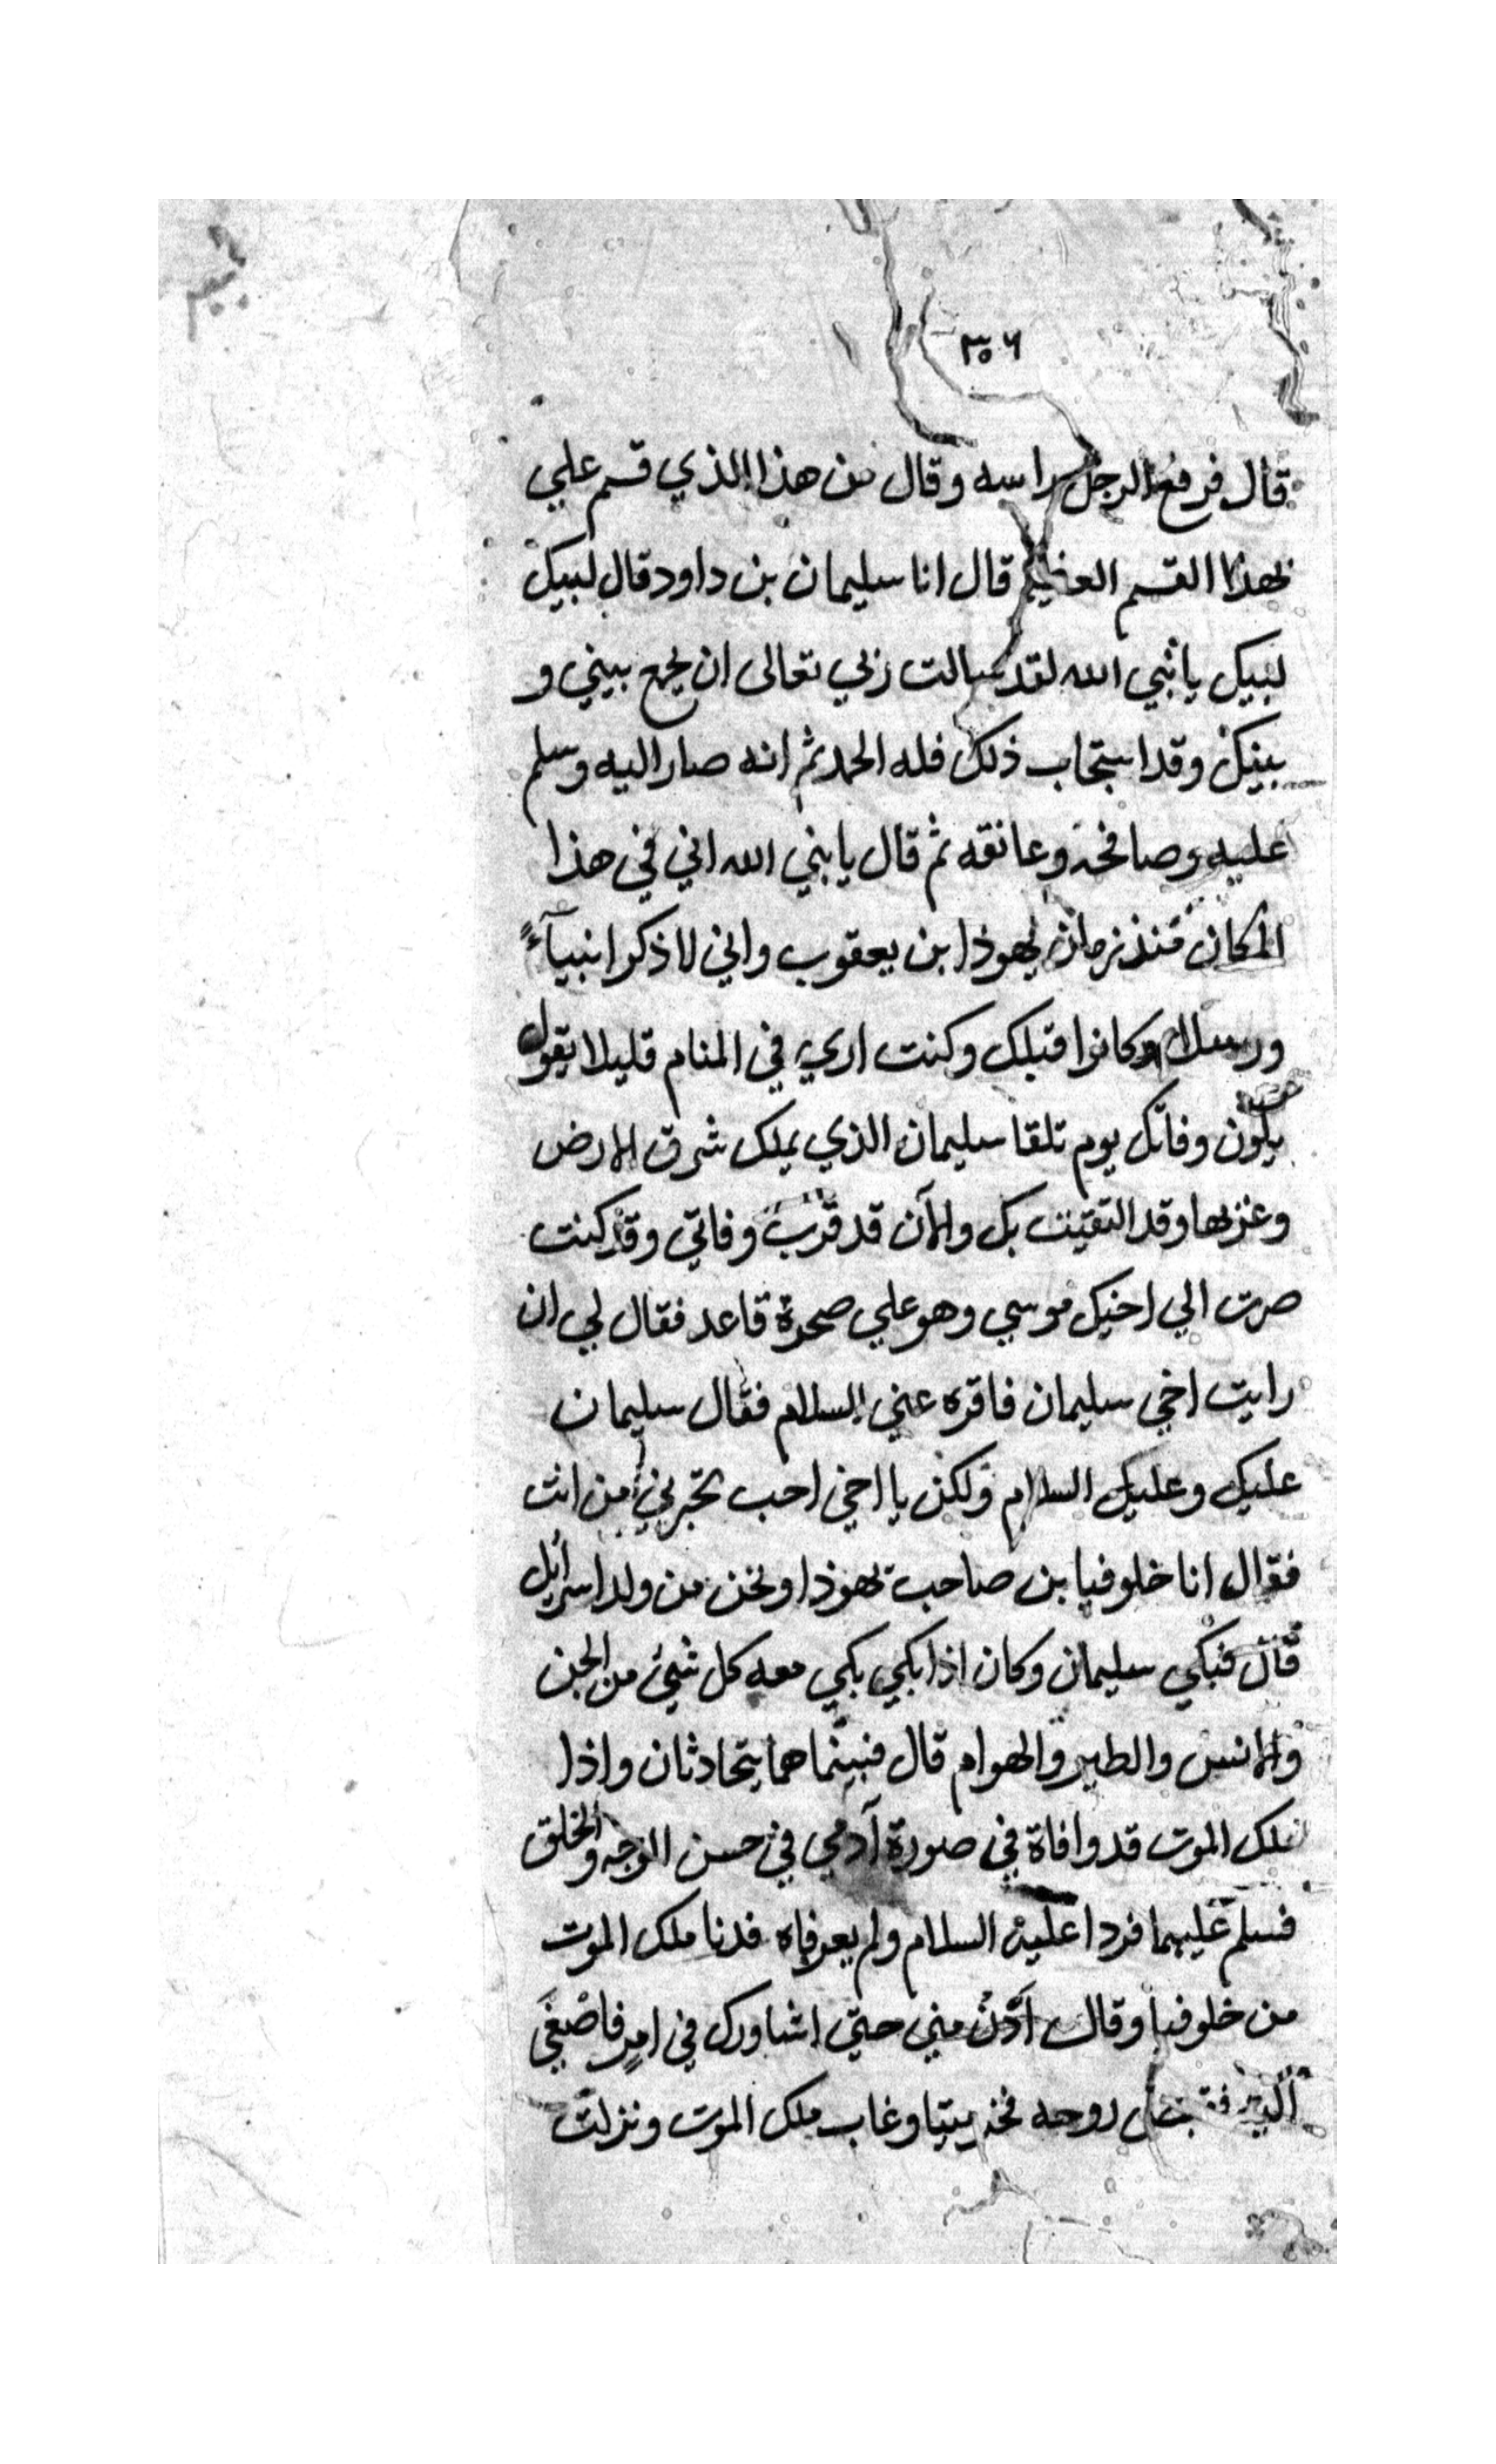 ٣٥٦
قال فرفع الرجل راسه وقال من هذا الذي قسم علي
بهذا القسم العظيم قال انا سليمان بن داود قال لبيك
لبيك يا نبي الله لقد سالت ربي تعالى ان يجمع بيني و
بينك وقد استجاب ذلك فله الحمد ثم انه صار اليه وسلم
عليه وصافحه وعانقه ثم قال يا نبي الله اني في هذا
المكان منذ زمان يهوذا بن يعقوب واني لاذكر انبيآء
ورسلا وكانوا قبلك وكنت اري في المنام قليلا يقول
يكون وفاتك يوم تلقا سليمان الذي يملك شرق الارض
وغربها وقد التقيت بك والآن قد قرب وفاتي وقد كنت
صرت الي اخيك موسي وهو علي صخرة قاعد فقال لي ان
رايت اخي سليمان فاقره عني السلام فقال سليمان
عليك وعليك السلام ولكن يا اخي احب تخبرني من انت
فقال انا خلوفيا بن صاحب يهوذا ونحن من ولد اسرائيل
قال فبكي سليمان وكان اذا بكي بكي معه كل شيئ من الجن
والانس والطير والهوام قال فبينما هما يتحادثان واذا
ملك الموت قد وافاة في صورة آدمي في حسن الوجه والخلق
فسلم عليهما فردا عليه السلام ولم يعرفاه فدنا ملك الموت
من خلوفيا وقال آدن مني حتي اشاورك في امر فاصغي
اليه فقبض روحه فخر ميتا وغاب ملك الموت ونزلت